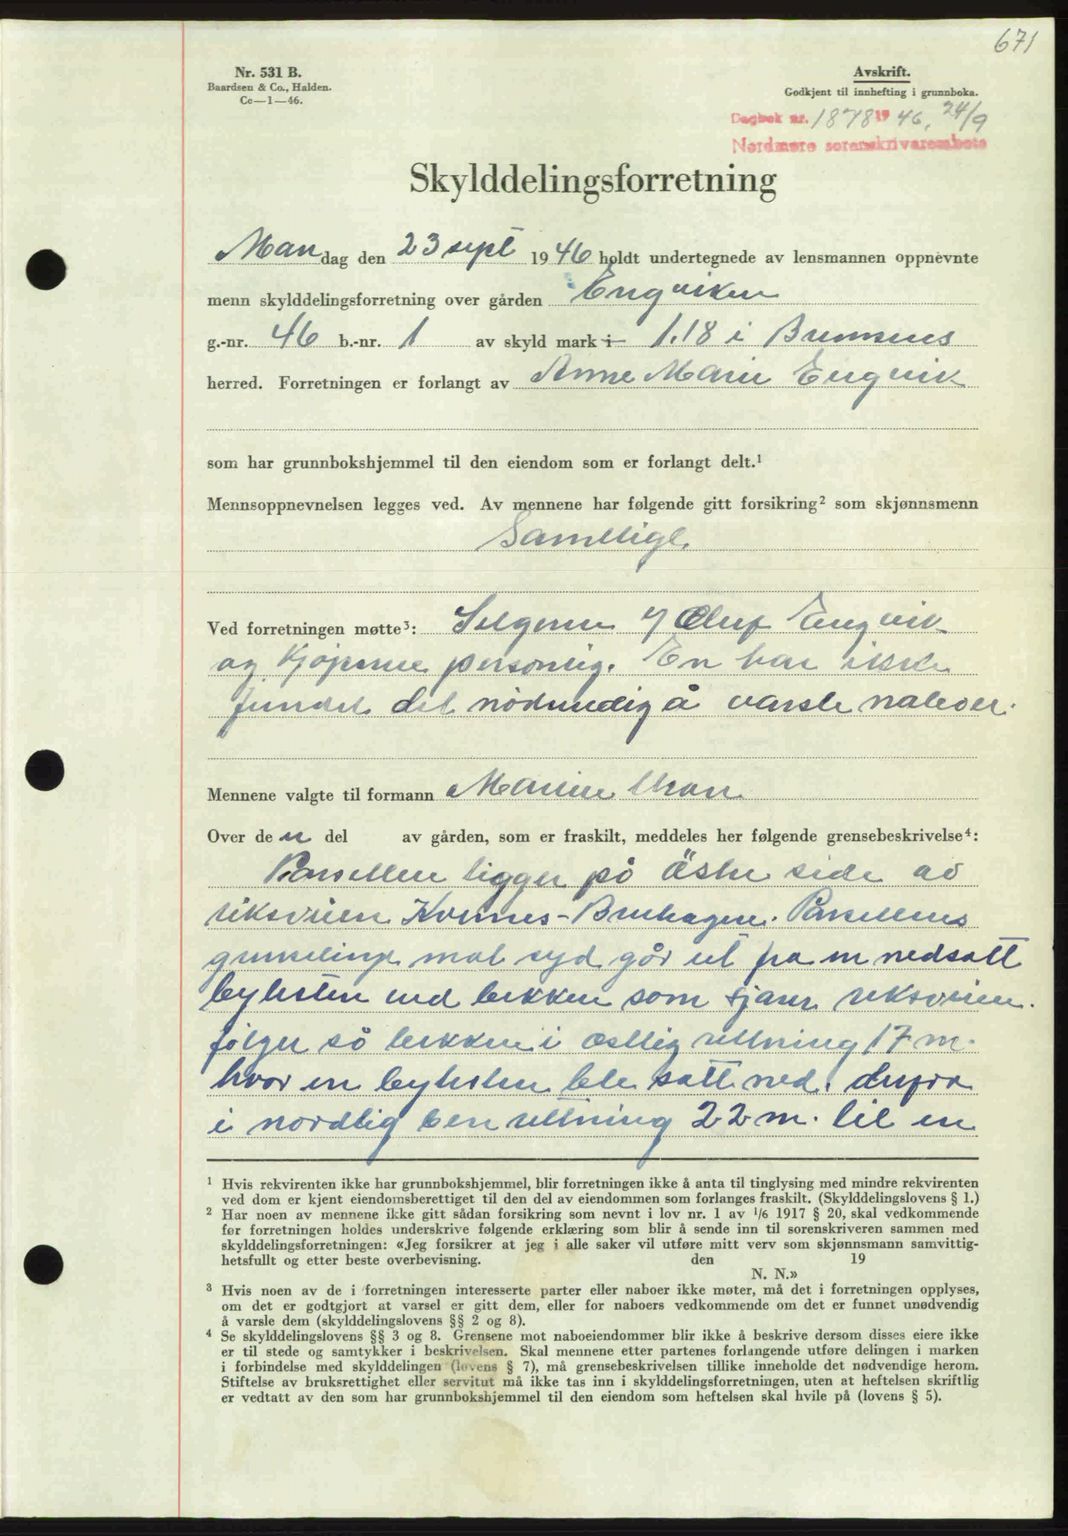 671
Nr. 531 B.
Baardsen & Co., Halden.
Cc—1—46.
Avskrift.
Godkjent til innhefting i grunnboka.
Dagbok nr. 1878 19 46, 24/9
Nordmøre sorenskrivarembete
Skylddelingsforretning
Mandag den 23 sept 1946 holdt undertegnede av lensmannen oppnevnte
menn skylddelingsforretning over gården Engviken
g.-nr. 46 b.-nr. 1 av skyld mark i 1.18 i Bremsnes
herred. Forretningen er forlangt av Anne Marie Engvik
som har grunnbokshjemmel til den eiendom som er forlangt delt.¹
Mennsoppnevnelsen legges ved. Av mennene har følgende gitt forsikring² som skjønnsmenn
Samtlige
Ved forretningen møtte³: Selgeren v/ Oluf Engvik
og kjøperne personlig. En har ikke
fundet det nødvendig å varsle naboer.
Mennene valgte til formann
Over de n del av gården, som er fraskilt, meddeles her følgende grensebeskrivelse⁴:
Parsellen ligger på østre side av
riksveien Kvernes-Bruhagen. Parsellens
grenselinje mot syd går ut fra en nedsatt
bytesten ved bekken som skjærer riksveien.
følger så bekken i østlig retning 17 m.
hvor en bytesten ble satt ned. derfra
i nordlig retning 22 m. til en
¹ Hvis rekvirenten ikke har grunnbokshjemmel, blir forretningen ikke å anta til tinglysing med mindre rekvirenten
ved dom er kjent eiendomsberettiget til den del av eiendommen som forlanges fraskilt. (Skylddelingslovens § 1.)
² Har noen av mennene ikke gitt sådan forsikring som nevnt i lov nr. 1 av 1/6 1917 § 20, skal vedkommende
før forretningen holdes underskrive følgende erklæring som blir å sende inn til sorenskriveren sammen med
skylddelingsforretningen: «Jeg forsikrer at jeg i alle saker vil utføre mitt verv som skjønnsmann samvittig-
hetsfullt og etter beste overbevisning. den 19
N. N.»
³ Hvis noen av de i forretningen interesserte parter eller naboer ikke møter, må det i forretningen opplyses,
om det er godtgjort at varsel er gitt dem, eller for naboers vedkommende om det er funnet unødvendig
å varsle dem (skylddelingslovens §§ 2 og 8).
⁴ Se skylddelingslovens §§ 3 og 8. Grensene mot naboeiendommer blir ikke å beskrive dersom disses eiere ikke
er til stede og samtykker i beskrivelsen. Skal mennene etter partenes forlangende utføre delingen i marken
i forbindelse med skylddelingen (lovens § 7), må grensebeskrivelsen tillike inneholde det nødvendige herom.
Stiftelse av bruksrettighet eller servitut må ikke tas inn i skylddelingsforretningen, uten at heftelsen skriftlig
er vedtatt av den som har grunnbokshjemmel til den eiendom som heftelsen skal hvile på (lovens § 5).